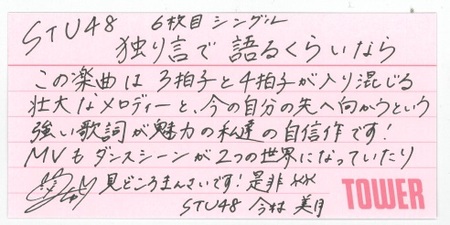 STU48 6枚目シングル
独り言で語るくらいなら
この楽曲は3拍子と4拍子が入り混じる
壮大なメロディーと、今の自分の先へ向かうという
強い歌詞が魅力の私達の自信作です!
MVもダンスシーンが2つの世界になっていたり
見どころまんさいです!是非××
STU48 今村 美月
TOWER